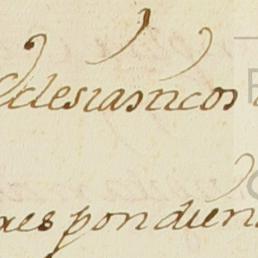 eclesiasticos
respondien